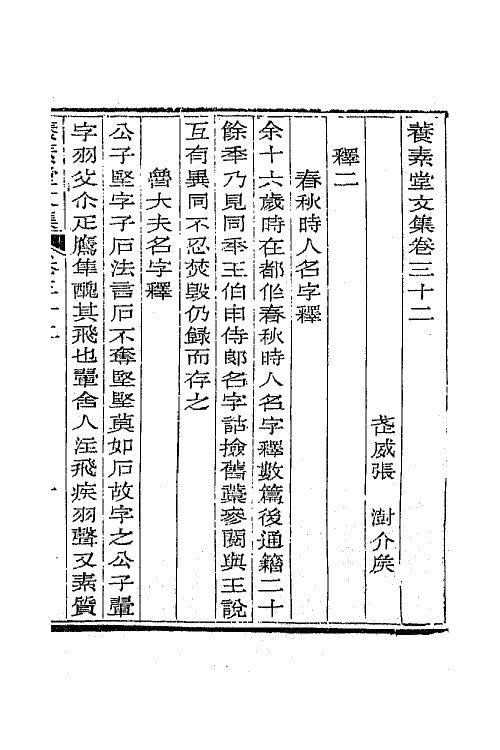 養素堂文集卷三十二
武威張　澍介矦
釋二
春秋時人名字釋
余十六歲時在都作春秋時人名字釋數篇後通籍二十
餘年乃見同年王伯申侍郎名字詁撿舊藁參閱與王說
互有異同不忍焚毀仍錄而存之
魯大夫名字釋
公子堅字子石法言石不奪堅堅莫如石故字之公子翬
字羽父尒疋鷹隼醜其飛也翬舍人注飛疾羽聲又素質